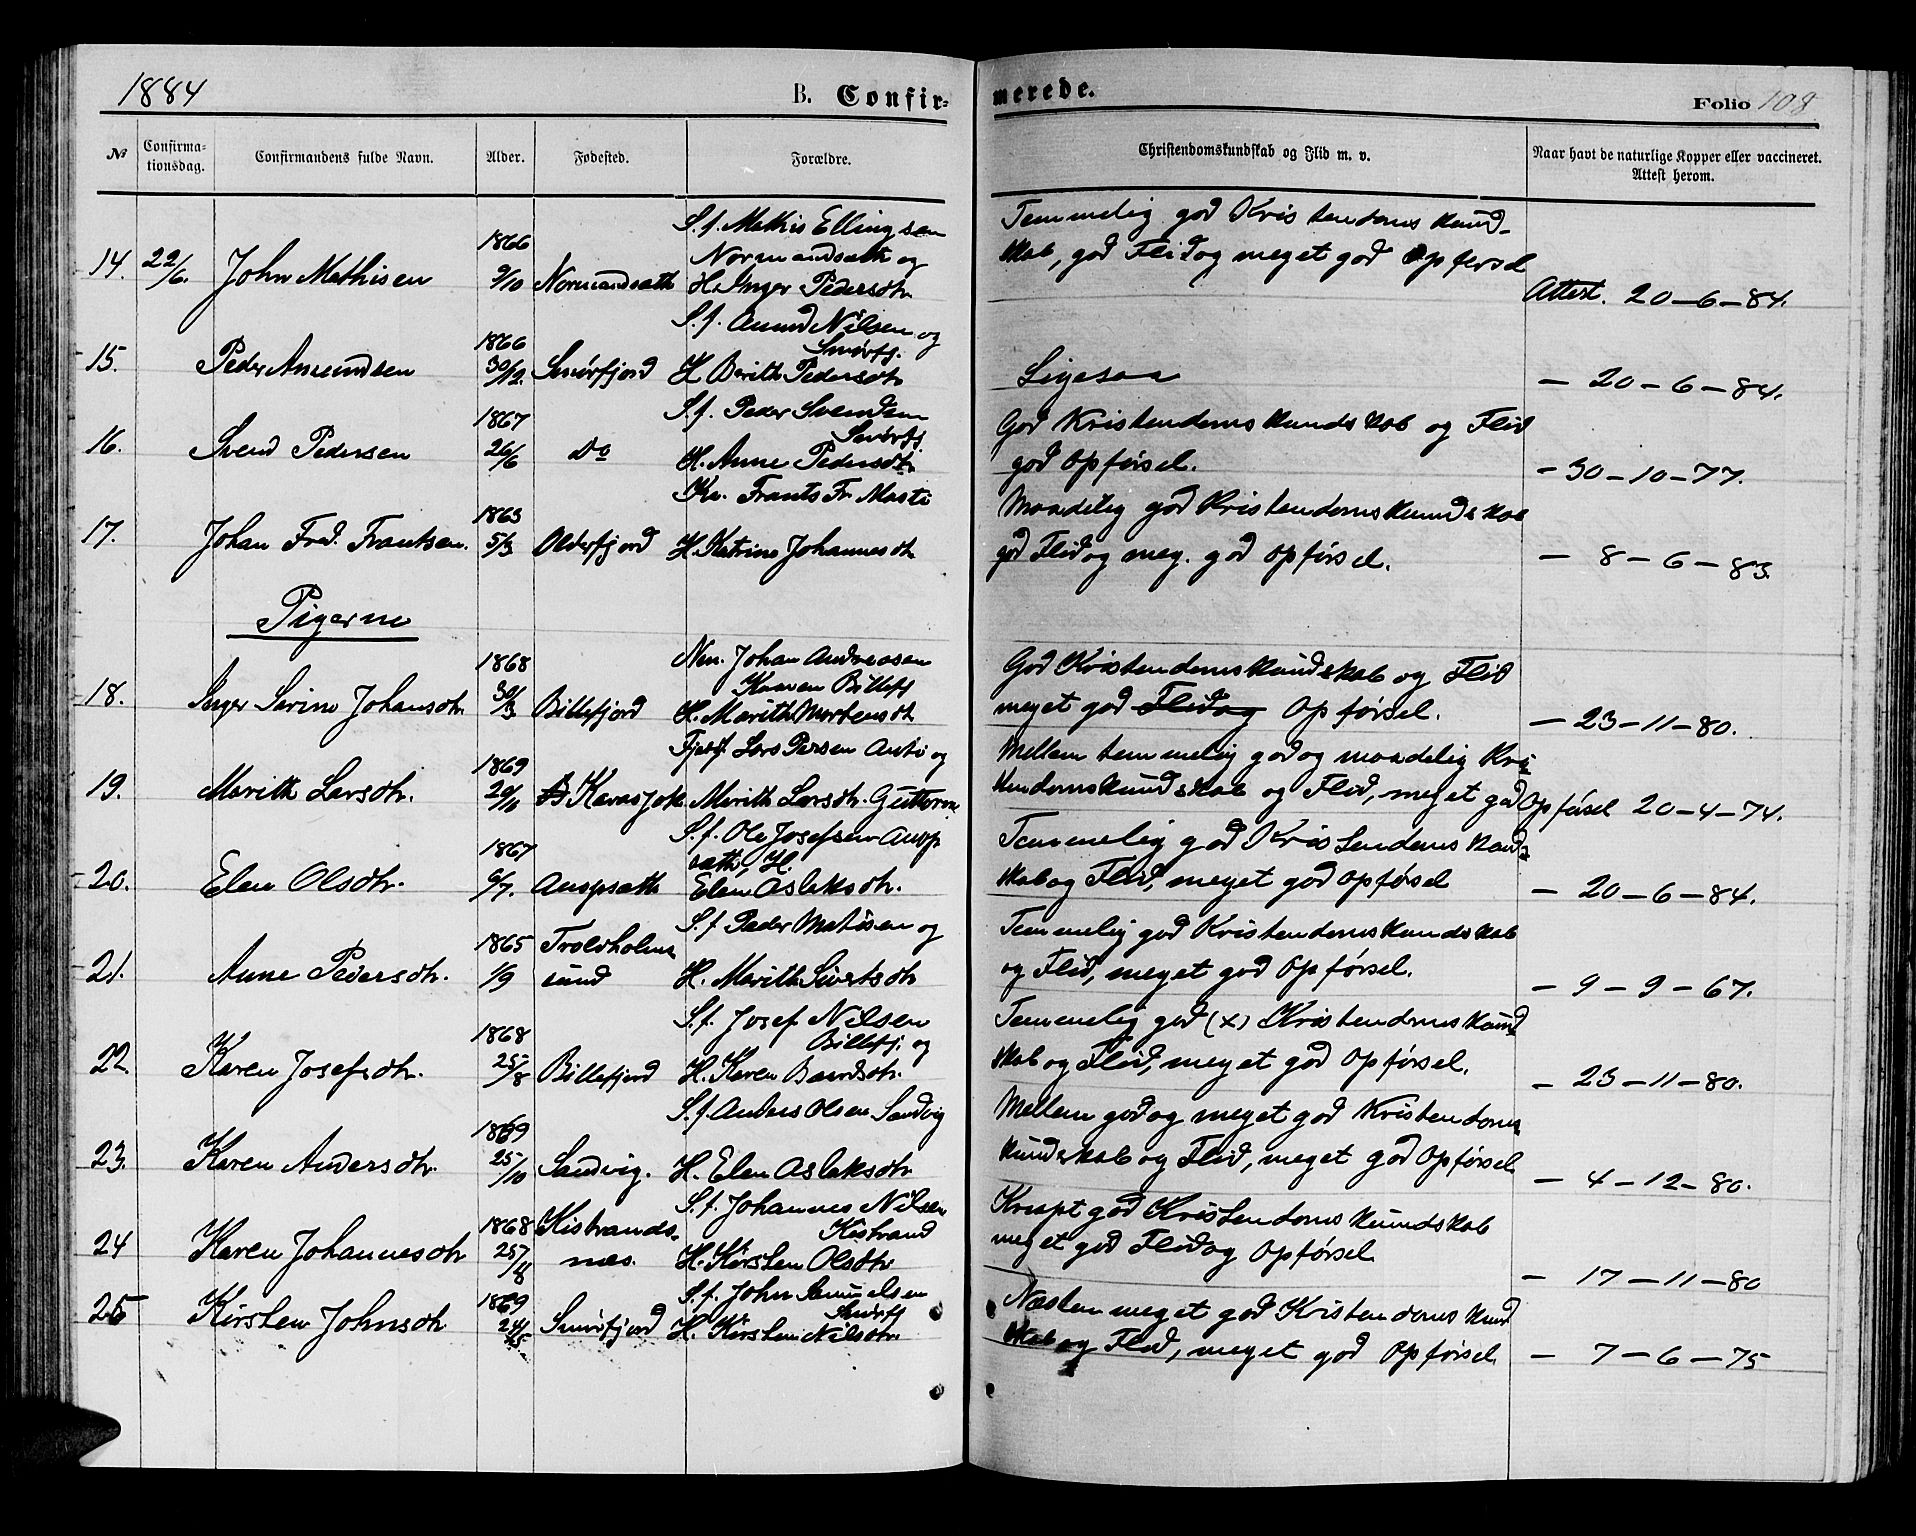 1884 B. Confir-
merede. Folio 108
№ Confirma-
tionsdag. Confirmandens fulde Navn. Alder. Fødested. Forældre.
Christendomskundskab og Flid m. v. Naar havt de naturlige Kopper eller vaccineret.
Attest herom.
S. f. Mathis Ellingsen
14. 22/6. John Mathisen 1866 9/10 Normandsæth Normandsæth og
H. Inger Pedersdtr.
Temmelig god Kristendomskund-
skab, god Flid og meget god Opførsel
Attest. 20-6-84.
S. f. Amund Nilsen og
15. Peder Amundsen 1866 30/12. Smørfjord Smørfj.
H Berith Pedersdtr
Ligesaa - 20-6-84.
S. f. Peder Svendsen
16. Svend Pedersen 1867 26/6 Do Smørfj.
H. Anne Pedersdtr
God Kristendomskundskab og Flid
god Opførsel. - 30-10-77.
Kv. Frants Fr. Masti
17. Johan Fred. Frantsen. 1865 5/3 Olderfjord H. Katrine Johannesdtr
Maadelig god Kristendomskundskab
god Flid og meg. god Opførsel. - 8-6-83.
Pigerne
Nm. Johan Andreasen
18. Inger Serine Johansdtr. 1868 30/3 Billefjord Kaaven Billefj
H. Marith Mortensdt
God Kristendomskundskab og Flid
meget god Flid og Opførsel. - 23-11-80.
Fjeldf. Lars Persen Anti og
19. Marith Larsdtr. 1869 20/11 Karasjok Marith Larsdtr. Guttorm
Mellem temmelig god og maadelig Kri-
stendomskundskab og Flid, meget god Opførsel 20-4-74.
S. f. Ole Josefsen Ausp
20. Elen Olsdtr. 1867 6/7. Auspsæth sæth, H.
Elen Aslaksdtr.
Temmelig god Kristendomskund-
skab og Flid, meget god Opførsel - 20-6-84.
S. f Peder Matisen og
21. Anne Pedersdtr. 1865 1/9 Troldholm
sund H. Marith Sivertsdtr
Temmelig god Kristendomskundskab
og Flid, meget god Opførsel. - 9-9-67.
S. f. Josef Nilsen
22. Karen Josefsdtr. 1868 25/8 Billefjord Billefj. og
H. Karen Baardsdtr.
Temmelig god (x) Kristendomskund
skab og Flid, meget god Opførsel. - 23-11-80.
S. f Anders Olsen Sandvig
23. Karen Andersdtr. 1869 25/10 Sandvig. H. Elen Aslaksdtr
Mellem god og meget god Kristendoms
kundskab og Flid, meget god Opførsel - 4-12-80.
S. f. Johannes Nilsen
24 Karen Johannesdtr 1868 25/11 Kistrands-
næs. Kistrand
H. Kirsten Olsdtr.
Knapt god Kristendomskundskab
meget god Flid og Opførsel - 17-11-80
S. f. John Samuelsen
25 Kirsten Johnsdtr 1869 24/5 Smørfjord Smørfj
H. Kirsten Nilsdtr.
Næsten meget god Kristendomskund
skab og Flid, meget god Opførsel - 7-6-75